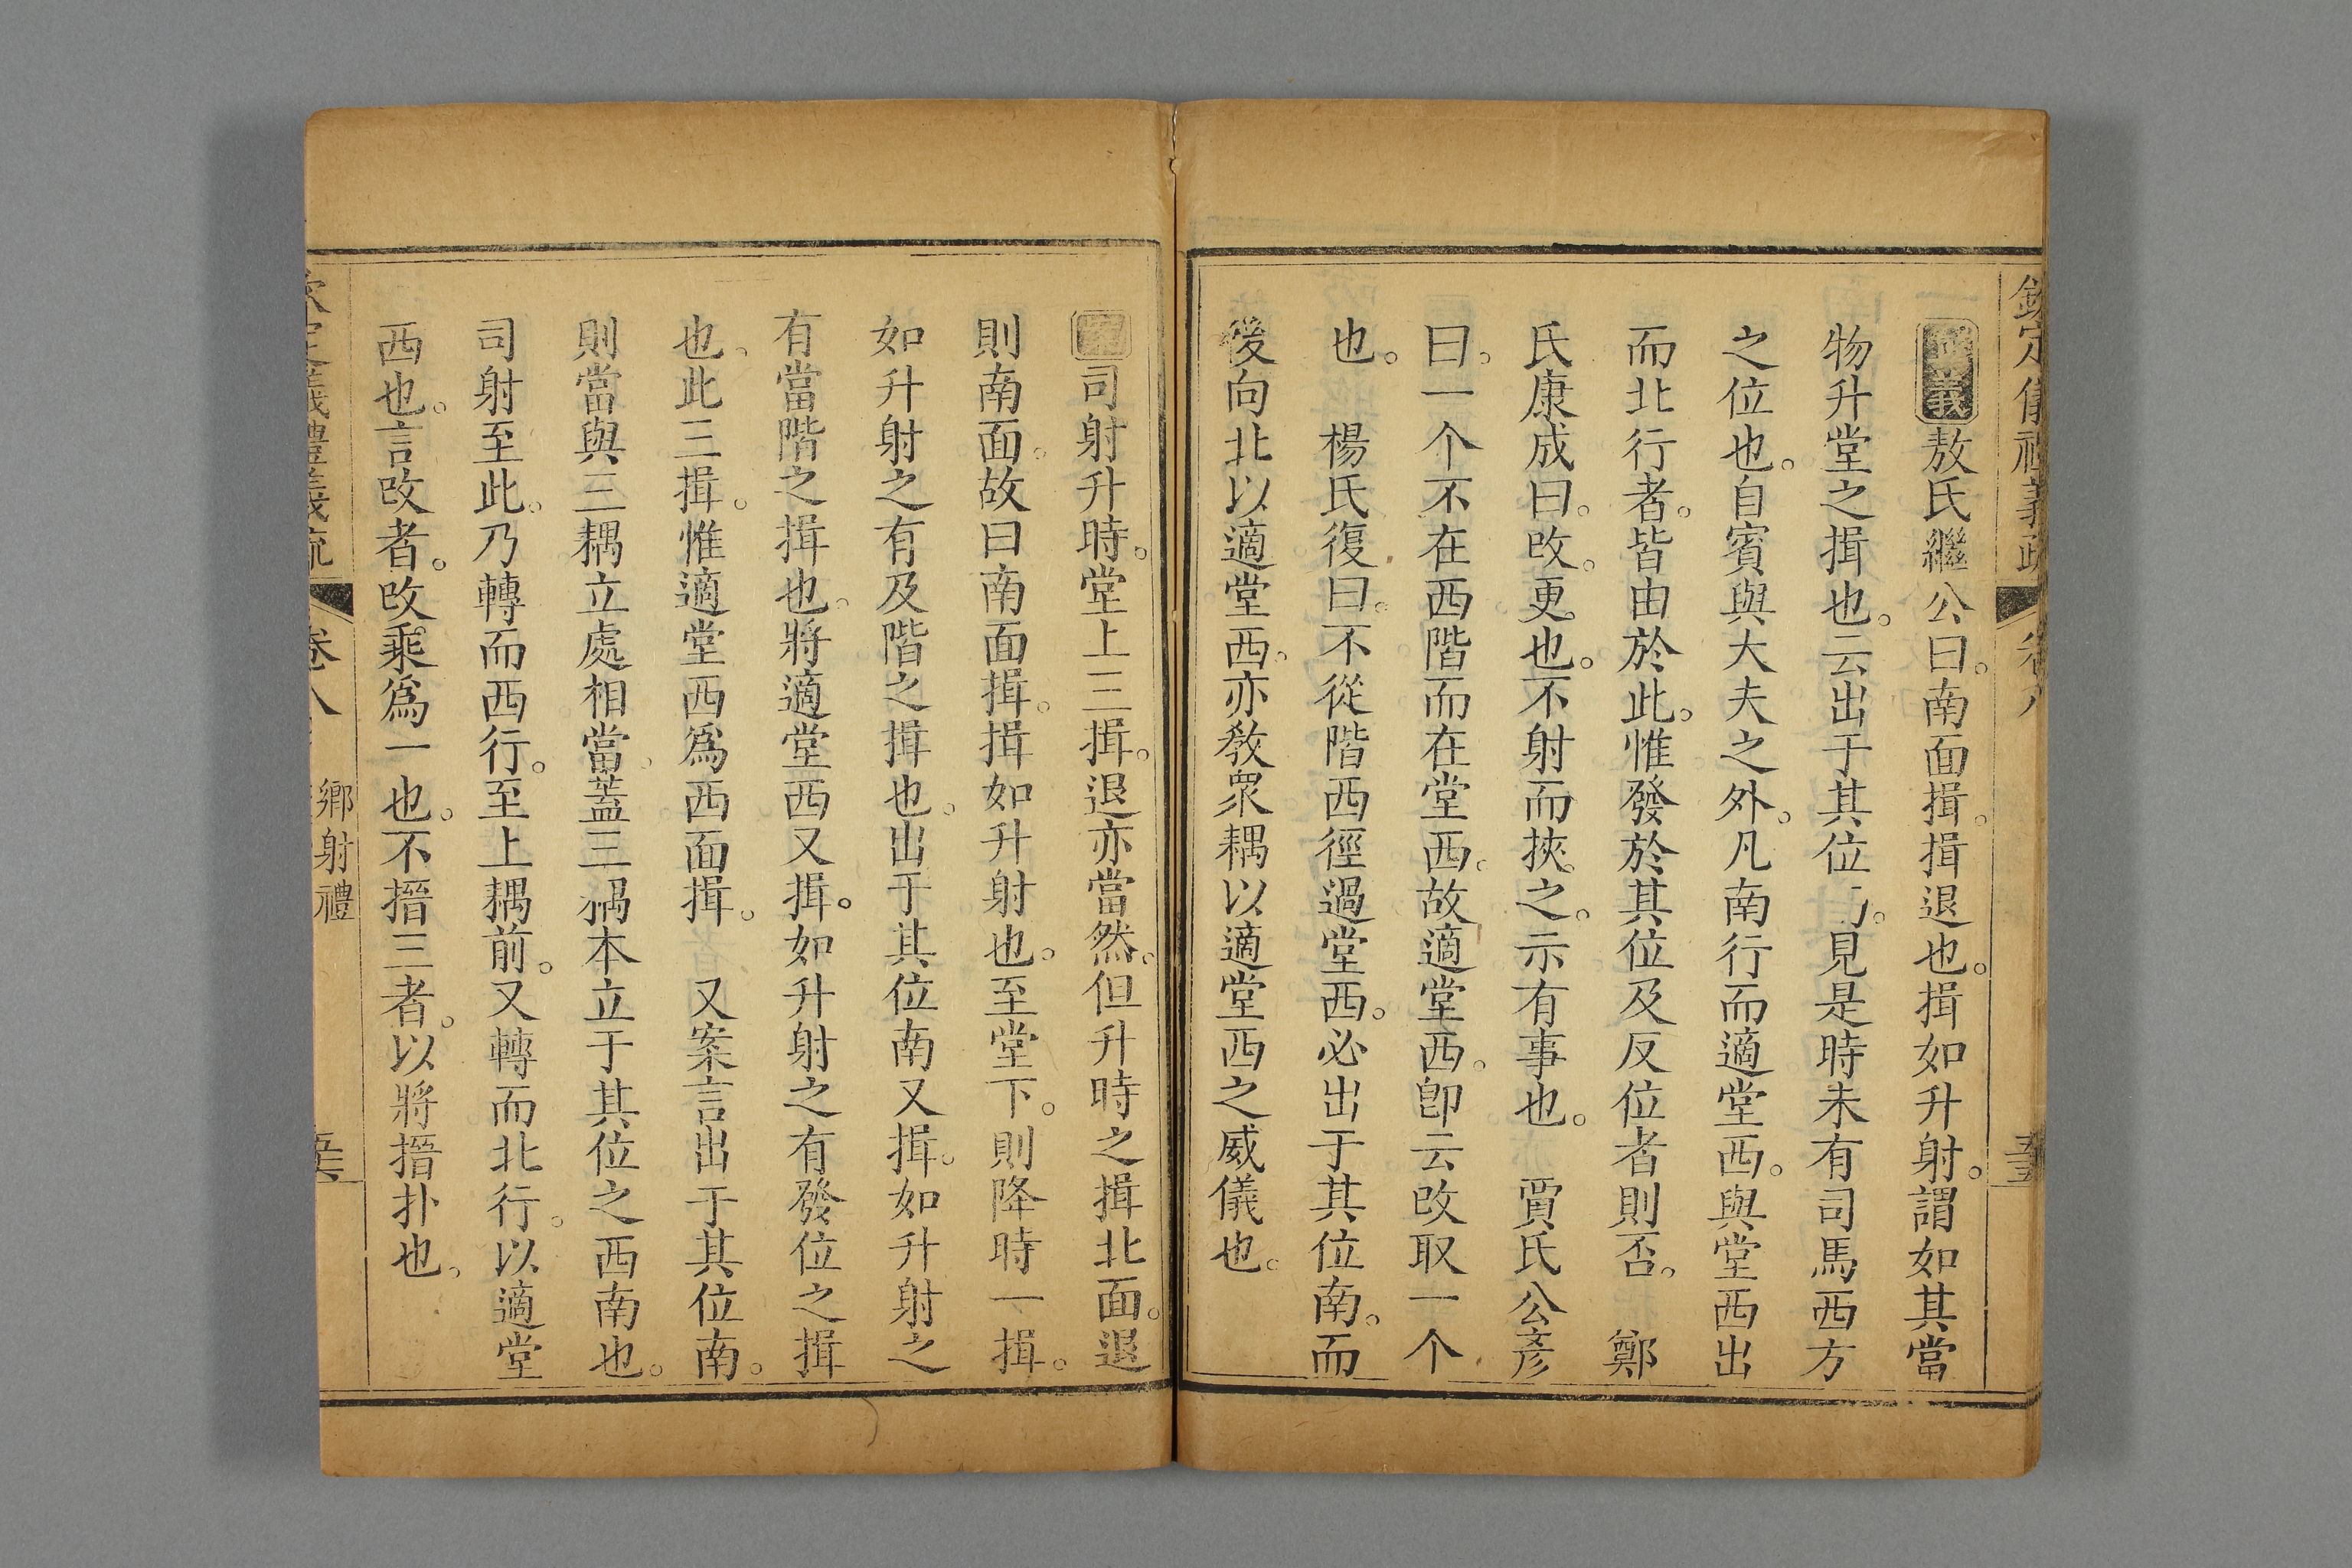 欽定儀禮義疏
卷八
義敖氏繼公曰。南面揖。揖退也。揖如升射。謂如其當
物升堂之揖也。云出于其位。見是時未有司馬西方
之位也。自賓與大夫之外。凡南行而適堂西。與堂西出
而北行者。皆由於此。惟發於其位及反位者則否。 鄭
氏康成曰。改。更也。不射而挾之。示有事也。 賈氏公彥
曰。一个不在西階而在堂西。故適堂西。卽云改取一个
也。 楊氏復曰。不從階西徑過堂西。必出于其位南。而
後向北以適堂西。亦敎衆耦以適堂西之威儀也。
司射升時。堂上三揖。退亦當然。但升時之揖北面。退
則南面。故曰南面揖。揖如升射也。至堂下。則降時一揖。
如升射之有及階之揖也。出于其位南又揖。如升射之
有當階之揖也。將適堂西又揖。如升射之有發位之揖
也。此三揖。惟適堂西爲西面揖。 又案言出于其位南。
則當與三耦立處相當。蓋三耦本立于其位之西南也。
司射至此。乃轉而西行。至上耦前。又轉而北行。以適堂
西也。言改者。改乘爲一也。不搢三者。以將搢扑也。
欽定儀禮義疏
卷八
鄉射禮